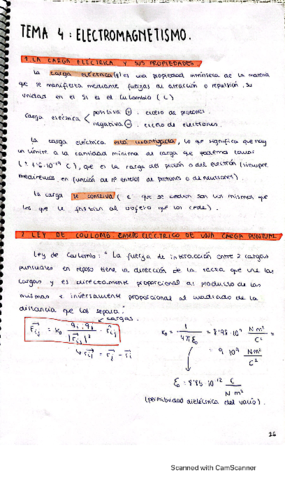 TEMA 4: ELECTROMAGNETISMO.
1 LA CARGA ELÉCTRICA Y SUS PROPIEDADES
La carga eléctrica(q) es una propiedad intrínseca de la materia
que se manifiesta mediante fuerzas de atracción o repulsión. Su
unidad en el SI es el Culombio (C)
Carga eléctrica < positiva ⊕ : exceso de protones
negativa ⊖ : exceso de electrones.
La carga eléctrica está cuantizada, lo que significa que hay
un límite a la cantidad mínima de carga que podemos
(± 1'6·10⁻¹⁹ C), que es la carga del protón o del electrón (siempre
mediremos en función de nº entero de protones o de
la carga se conserva ( e⁻ que se son los mismos que
los que le al objeto que los cede).
2 LEY DE COULOMB CAMPO ELÉCTRICO DE UNA CARGA PUNTUAL
Ley de Coulomb: "La fuerza de interacción entre 2 cargas
puntuales en reposo tiene la dirección de la recta que une las
cargas y es directamente proporcional al producto de las
mismas e inversamente proporcional al cuadrado de la
distancia que los separa."
cargas.
F⃗ij = K₀ qi·qj / |r⃗ij|² · r̂ij
↳ r⃗ij = r⃗j - r⃗i
K₀ = 1 / 4πε₀ = 8'98·10⁹ N m² / C²
≈ 9·10⁹ [N m² / C²]
ε₀ = 8'85·10⁻¹² C / N m²
(permitividad dieléctrica del vacío).
26
Scanned with CamScanner